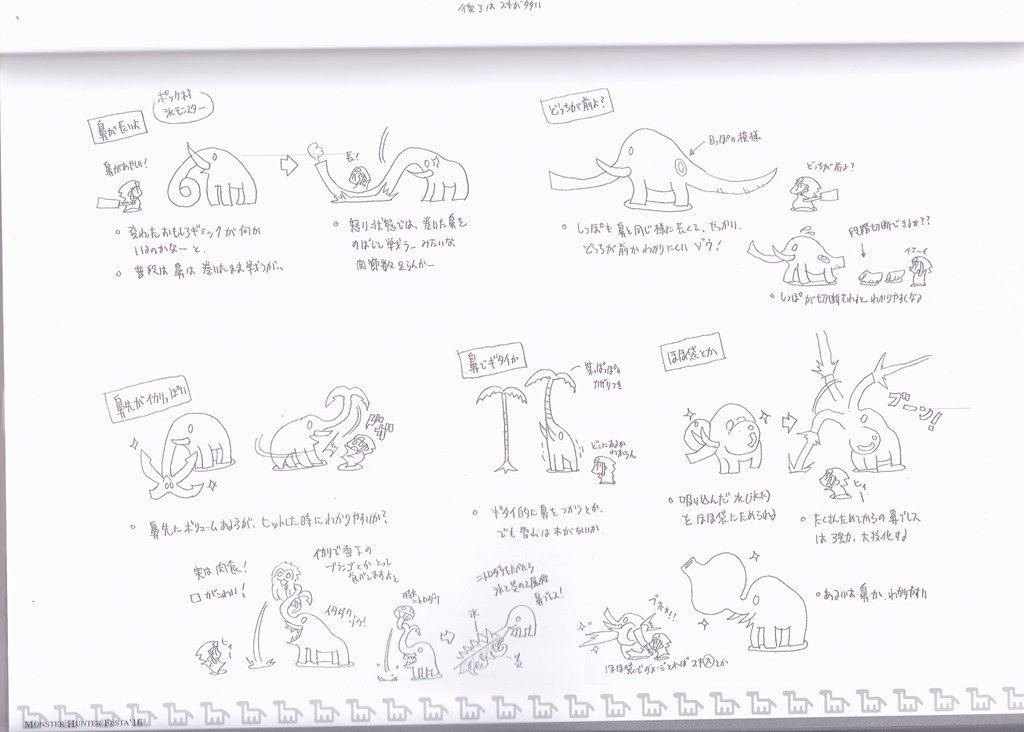 ポッケ村
氷モンスター
鼻が長いよ
鼻があやしい!
長!
・変わったおもしろギミックが何か
いるのかなーと、
・普段は鼻は巻いたまま戦うが、
・怒り状態では、巻いた鼻を
のばして戦うー みたいな
関節数足らんかー
どっちが前よ?
白っぽい模様
どっちが前よ?
・しっぽも鼻と同じ様に長くて、でっかい、
どっちが前かわかりにくいゾウ!
段階切断できますか??
・しっぽが切断されるとわかりやすくなる
鼻先がイカリっぽい
・鼻先にボリュームあるが、ヒットした時にわかりやすいか?
鼻でギタイか
葉っぱっぽい
どこにおるか
わからん
・ギタイ的に鼻をつかうとか、
でも雪山は木がないか
ほほ袋とか
ブーン!
ヒィー
・吸い込んだ水(氷水)
をほほ袋にためられる
・たくさんためてからの鼻ブレス
は強力、大技化する
実は肉食!
口がこわい!
イカリで雪下の
ブランゴとかとって
食べてますよと
イタダク
ゾウ!
ヒィー
ニトロダケ
氷
鼻ブレス!
ブホォ!!
ほほ袋にダメージとれば
・あるいは鼻か、わかりやすい
MONSTER HUNTER FESTA'16